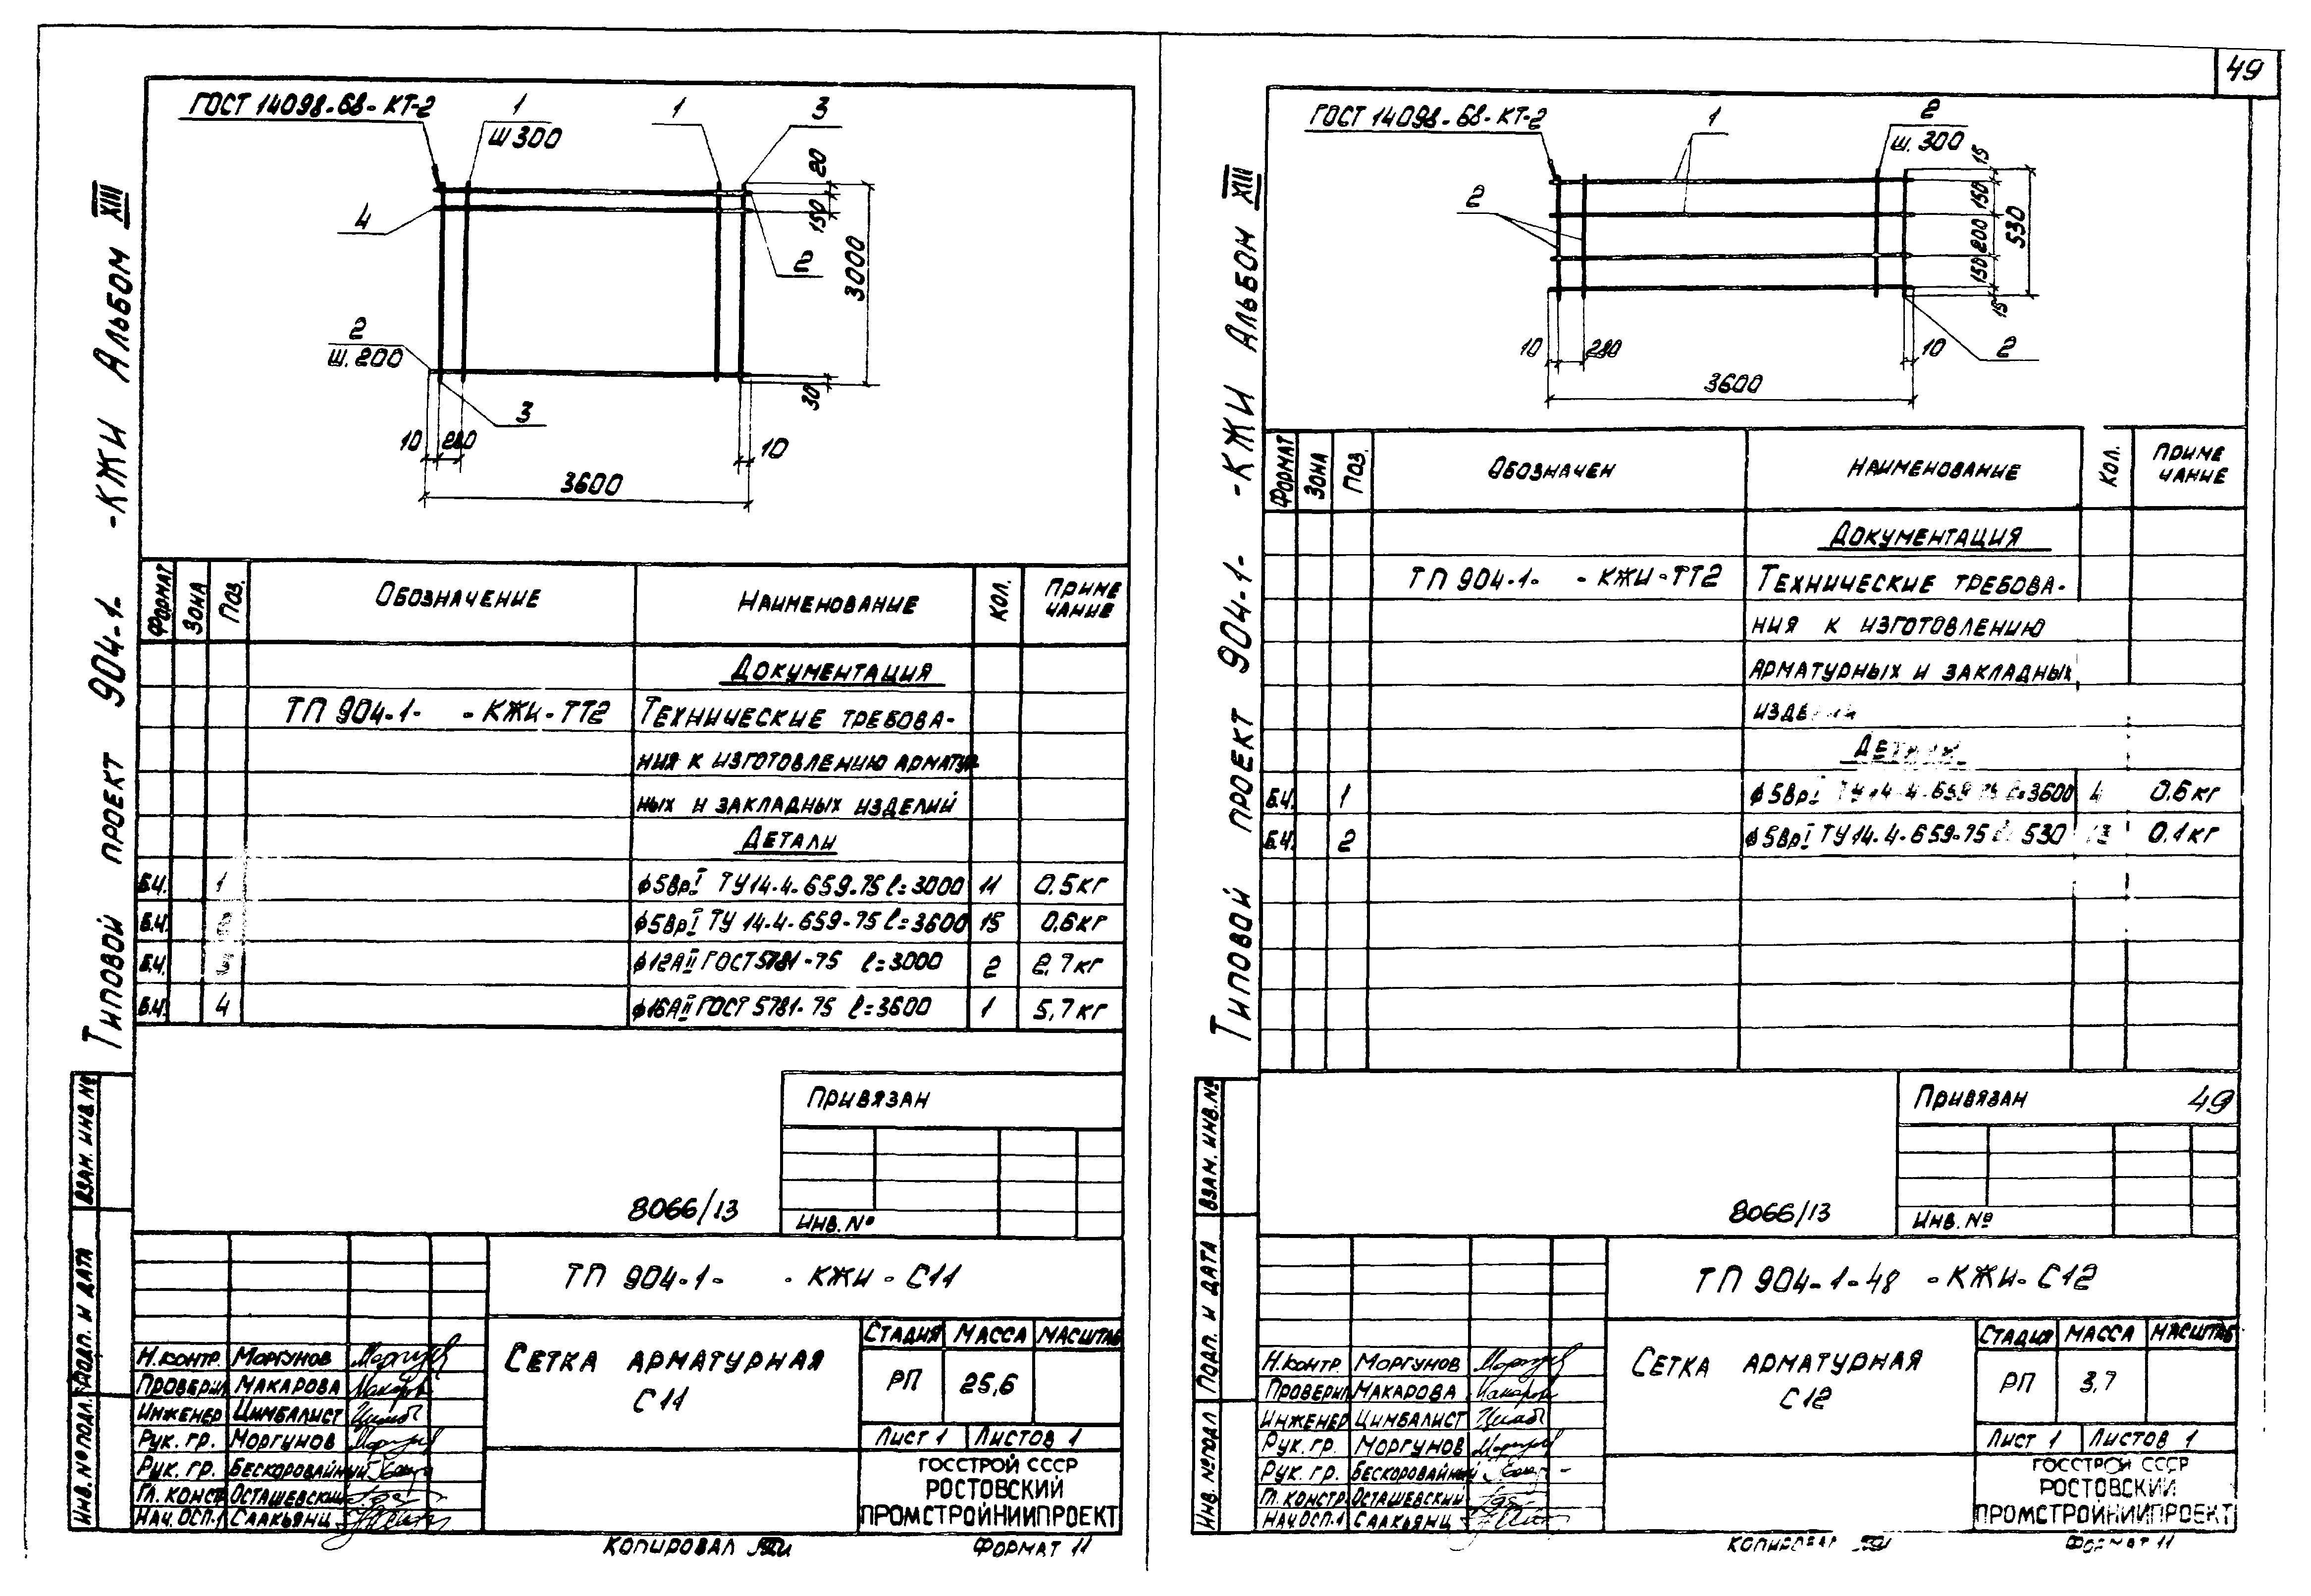 49
ГОСТ 14098-68-КТ-2
1
Ш 300
1
3
20
150
3000
4
2
2
Ш. 200
3
30
10
280
10
3600
Типовой проект 904-1- -КЖИ Альбом XIII
Формат Зона Поз. Обозначение Наименование Кол. Приме
чание
Документация
ТП 904-1- -КЖИ-ТТ2 Технические требова-
ния к изготовлению арматур
ных и закладных изделий
Детали
Б.Ч. 1 ϕ5ВрI ТУ14-4-659-75 ℓ=3000 11 0.5кг
Б.Ч. 2 ϕ5ВрI ТУ 14-4-659-75 ℓ=3600 15 0.6кг
Б.Ч. 3 ϕ12АII ГОСТ 5781-75 ℓ=3000 2 2,7кг
Б.Ч. 4 ϕ16АII ГОСТ 5781-75 ℓ=3600 1 5,7кг
Привязан
Инв. №
8066/13
Взам. инв. №
Подп. и дата
Инв. № подл.
ТП 904-1- -КЖИ-С11
Сетка арматурная
С11
Стадия Масса Масштаб
РП 25,6
Лист 1 Листов 1
Госстрой СССР
Ростовский
Промстройниипроект
Н.контр. Моргунов
Проверил Макарова
Инженер Цимбалист
Рук. гр. Моргунов
Рук. гр. Бескоровайный
Гл. констр Осташевский
Нач.осп.1 Саакьянц
Копировал
Формат 11
ГОСТ 14098-68-КТ-2
1
2
Ш. 300
2
15
150
200
150
15
530
10
280
10
2
3600
Типовой проект 904-1- -КЖИ Альбом XIII
Формат Зона Поз. Обозначен Наименование Кол. Приме
чание
Документация
ТП 904-1- -КЖИ-ТТ2 Технические требова-
ния к изготовлению
арматурных и закладных
изделий
Детали
Б.Ч. 1 ϕ5ВрI ТУ14-4-659-75 ℓ=3600 4 0.6кг
Б.Ч. 2 ϕ5ВрI ТУ14-4-659-75 ℓ= 530 13 0.1кг
Привязан
49
Инв. №
8066/13
Взам. инв. №
Подп. и дата
Инв. № подл
ТП 904-1-48 -КЖИ-С12
Сетка арматурная
С12
Стадия Масса Масштаб
РП 3,7
Лист 1 Листов 1
Госстрой СССР
Ростовский
Промстройниипроект
Н.контр. Моргунов
Проверил Макарова
Инженер Цимбалист
Рук. гр. Моргунов
Рук. гр. Бескоровайный
Гл. констр. Осташевский
Нач.осп.1 Саакьянц
Копировал
Формат 11